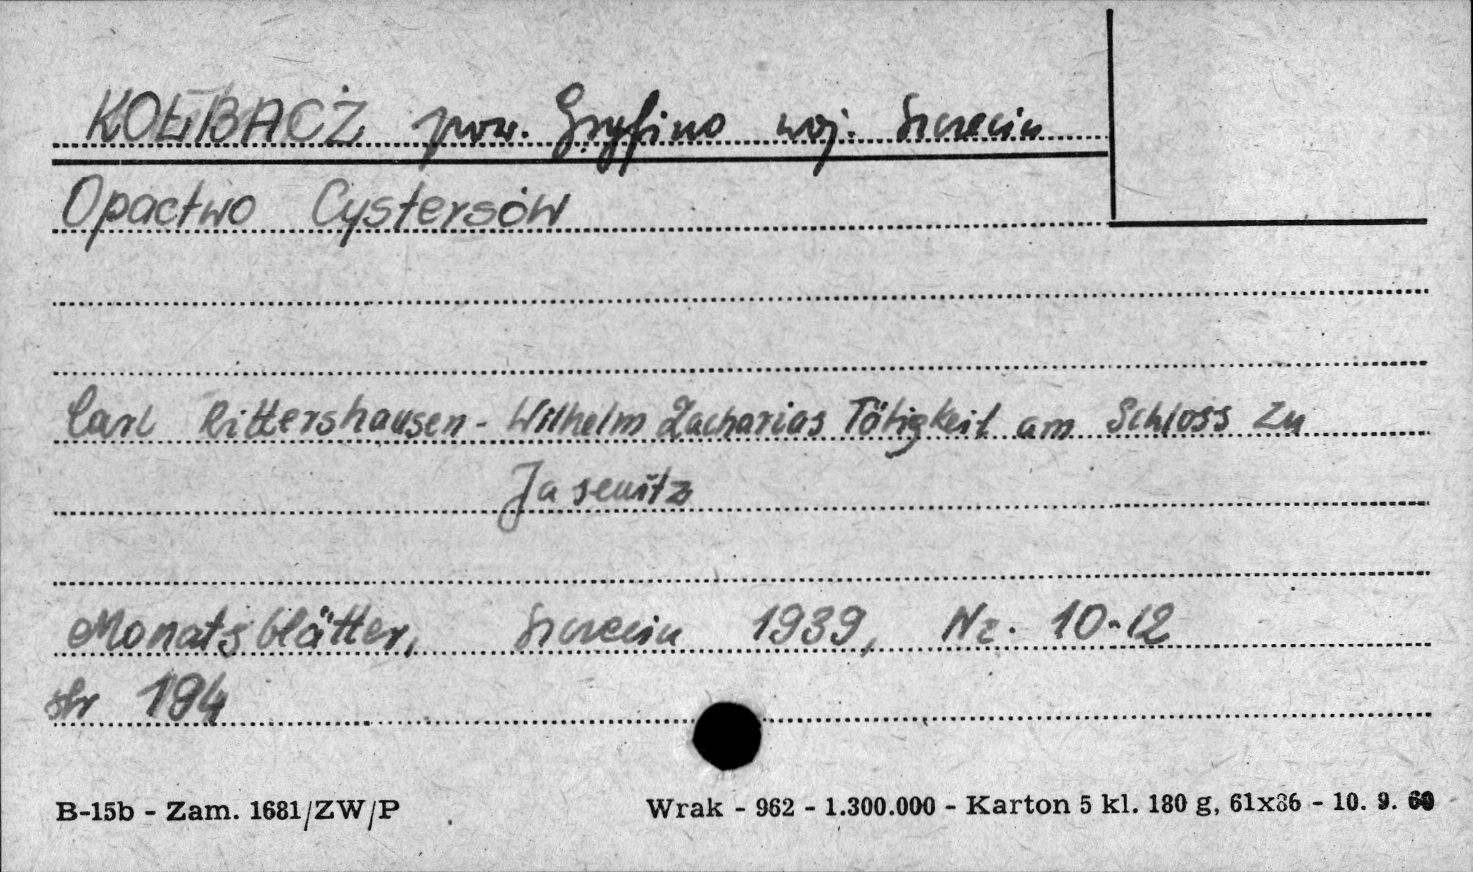 KOŁBACZ pow. Gryfino woj. Szczecin
Opactwo Cystersów
Carl Rittershausen - Wilhelm Zacharias Tätigkeit am Schloss zu
Jasenitz
Monatsblätter, Szczecin 1939, Nr. 10-12
str 194
B-15b - Zam. 1681/ZW/P
Wrak - 962 - 1.300.000 - Karton 5 kl. 180 g, 61x86 - 10. 9. 60